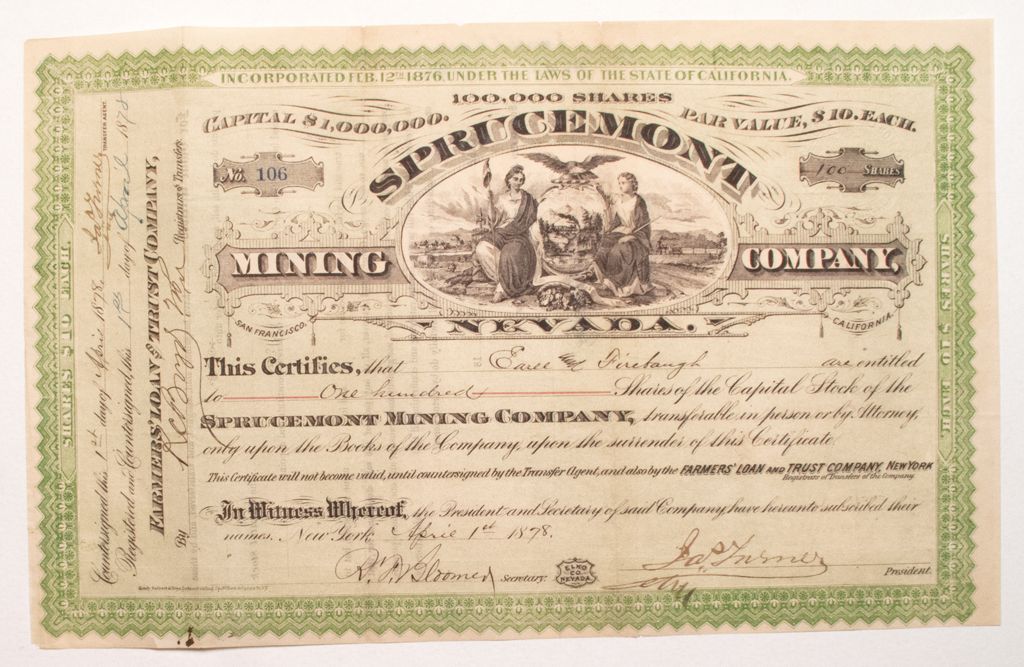 INCORPORATED FEB. 12TH 1876, UNDER THE LAWS OF THE STATE OF CALIFORNIA.
100,000 SHARES
CAPITAL $1,000,000. PAR VALUE, $10. EACH.
No. 106
100 SHARES
SPRUCEMONT
MINING COMPANY,
NEVADA.
SAN FRANCISCO. CALIFORNIA.
This Certifies, that Earll and Firebaugh are entitled
to One hundred Shares of the Capital Stock of the
SPRUCEMONT MINING COMPANY, transferable in person or by Attorney,
only upon the Books of the Company, upon the surrender of this Certificate.
This Certificate will not become valid, until countersigned by the Transfer Agent, and also by the FARMERS' LOAN AND TRUST COMPANY, NEW YORK
Registrars of Transfers of the Company.
In Witness Whereof, the President and Secretary of said Company have hereunto subscribed their
names. New York April 1st 1878.
Secretary. Jas Turner President.
ELKO
CO.
NEVADA.
Countersigned this 1st day of April 1878. Jas Turner TRANSFER AGENT.
Registered and Countersigned, this 1st day of April 1878
FARMERS' LOAN & TRUST COMPANY,
Registrars of Transfers.
By
SHARES $10 EACH.
SHARES $10 EACH.